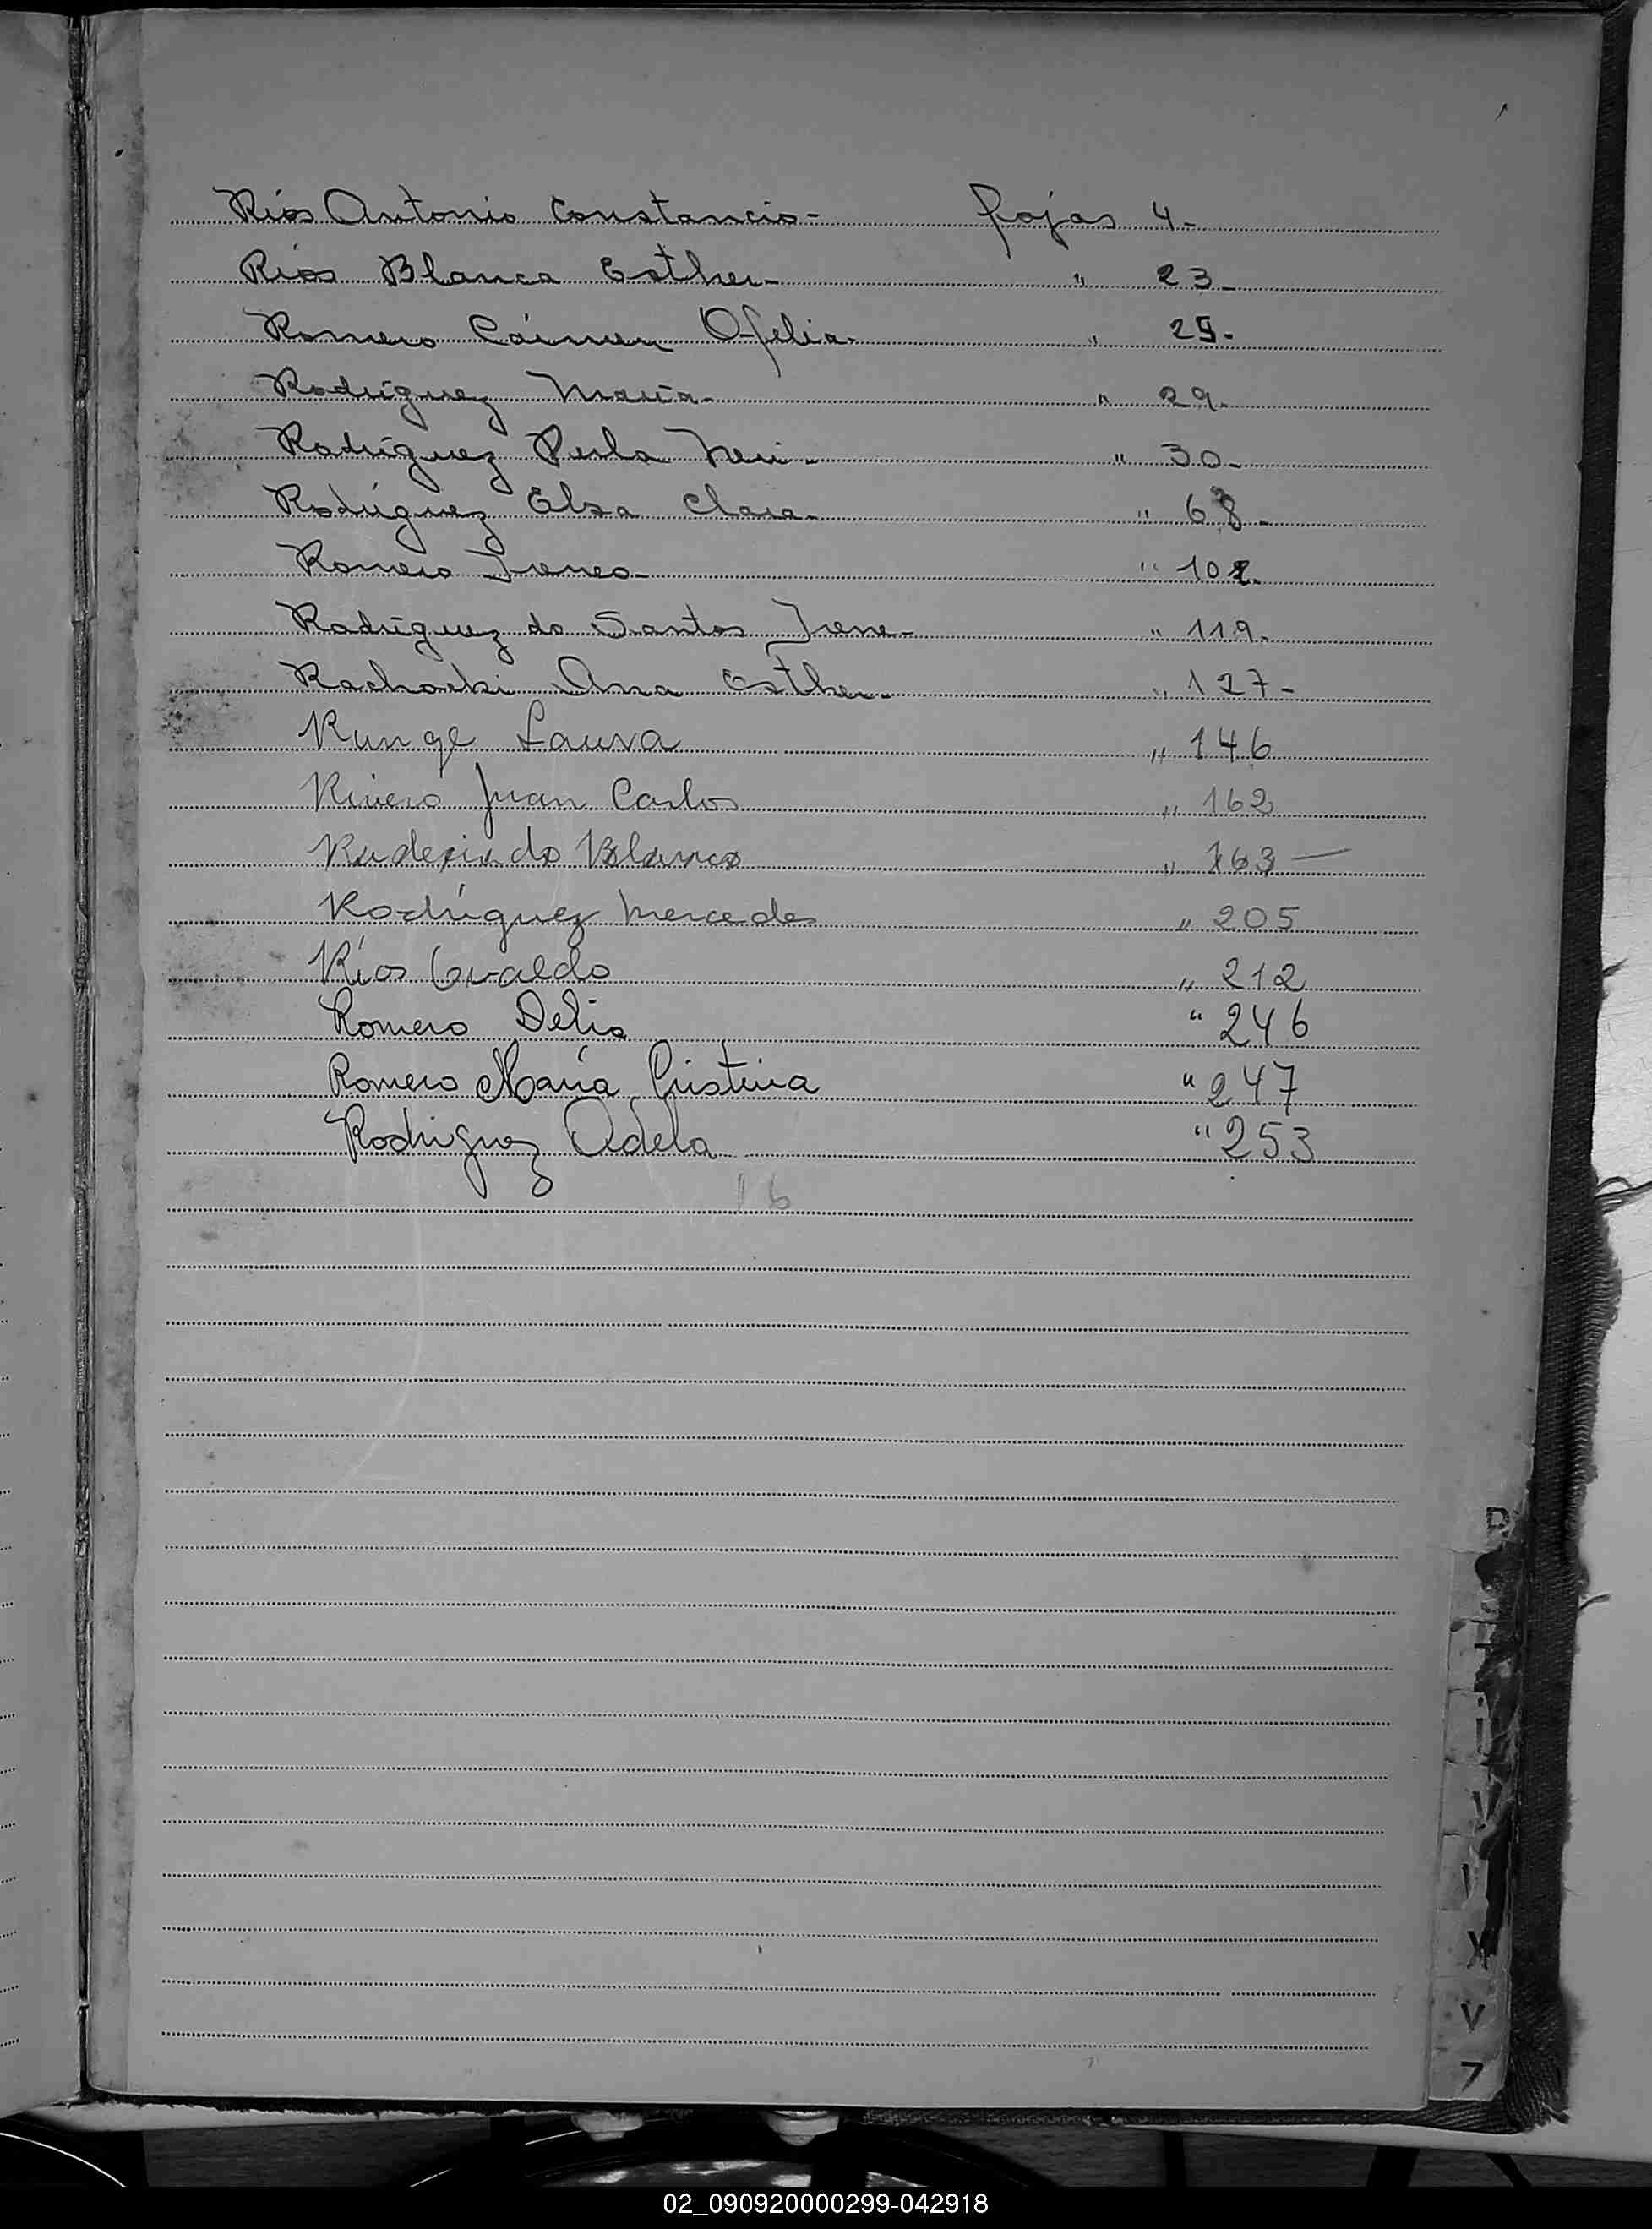 Ríos Antonio Constancio- fojas 4-
Ríos Blanca Esther- " 23-
Romero Cármen Ofelia- " 25-
Rodríguez María- " 29-
Rodríguez Perla Neri- " 30-
Rodríguez Elsa Clara- " 68-
Romero Ireneo- " 102-
Rodríguez do Santos Irene- " 119-
Rachoski Ana Esther- " 127-
Runge Laura " 146
Rivero Juan Carlos " 162
Rudesindo Blanco " 163 —
Rodríguez Mercedes " 205
Ríos Osvaldo " 212
Romero Delia " 246
Romero María Cristina " 247
Rodriguez Adela " 253
16
R
V
X
V
7
02_090920000299-042918